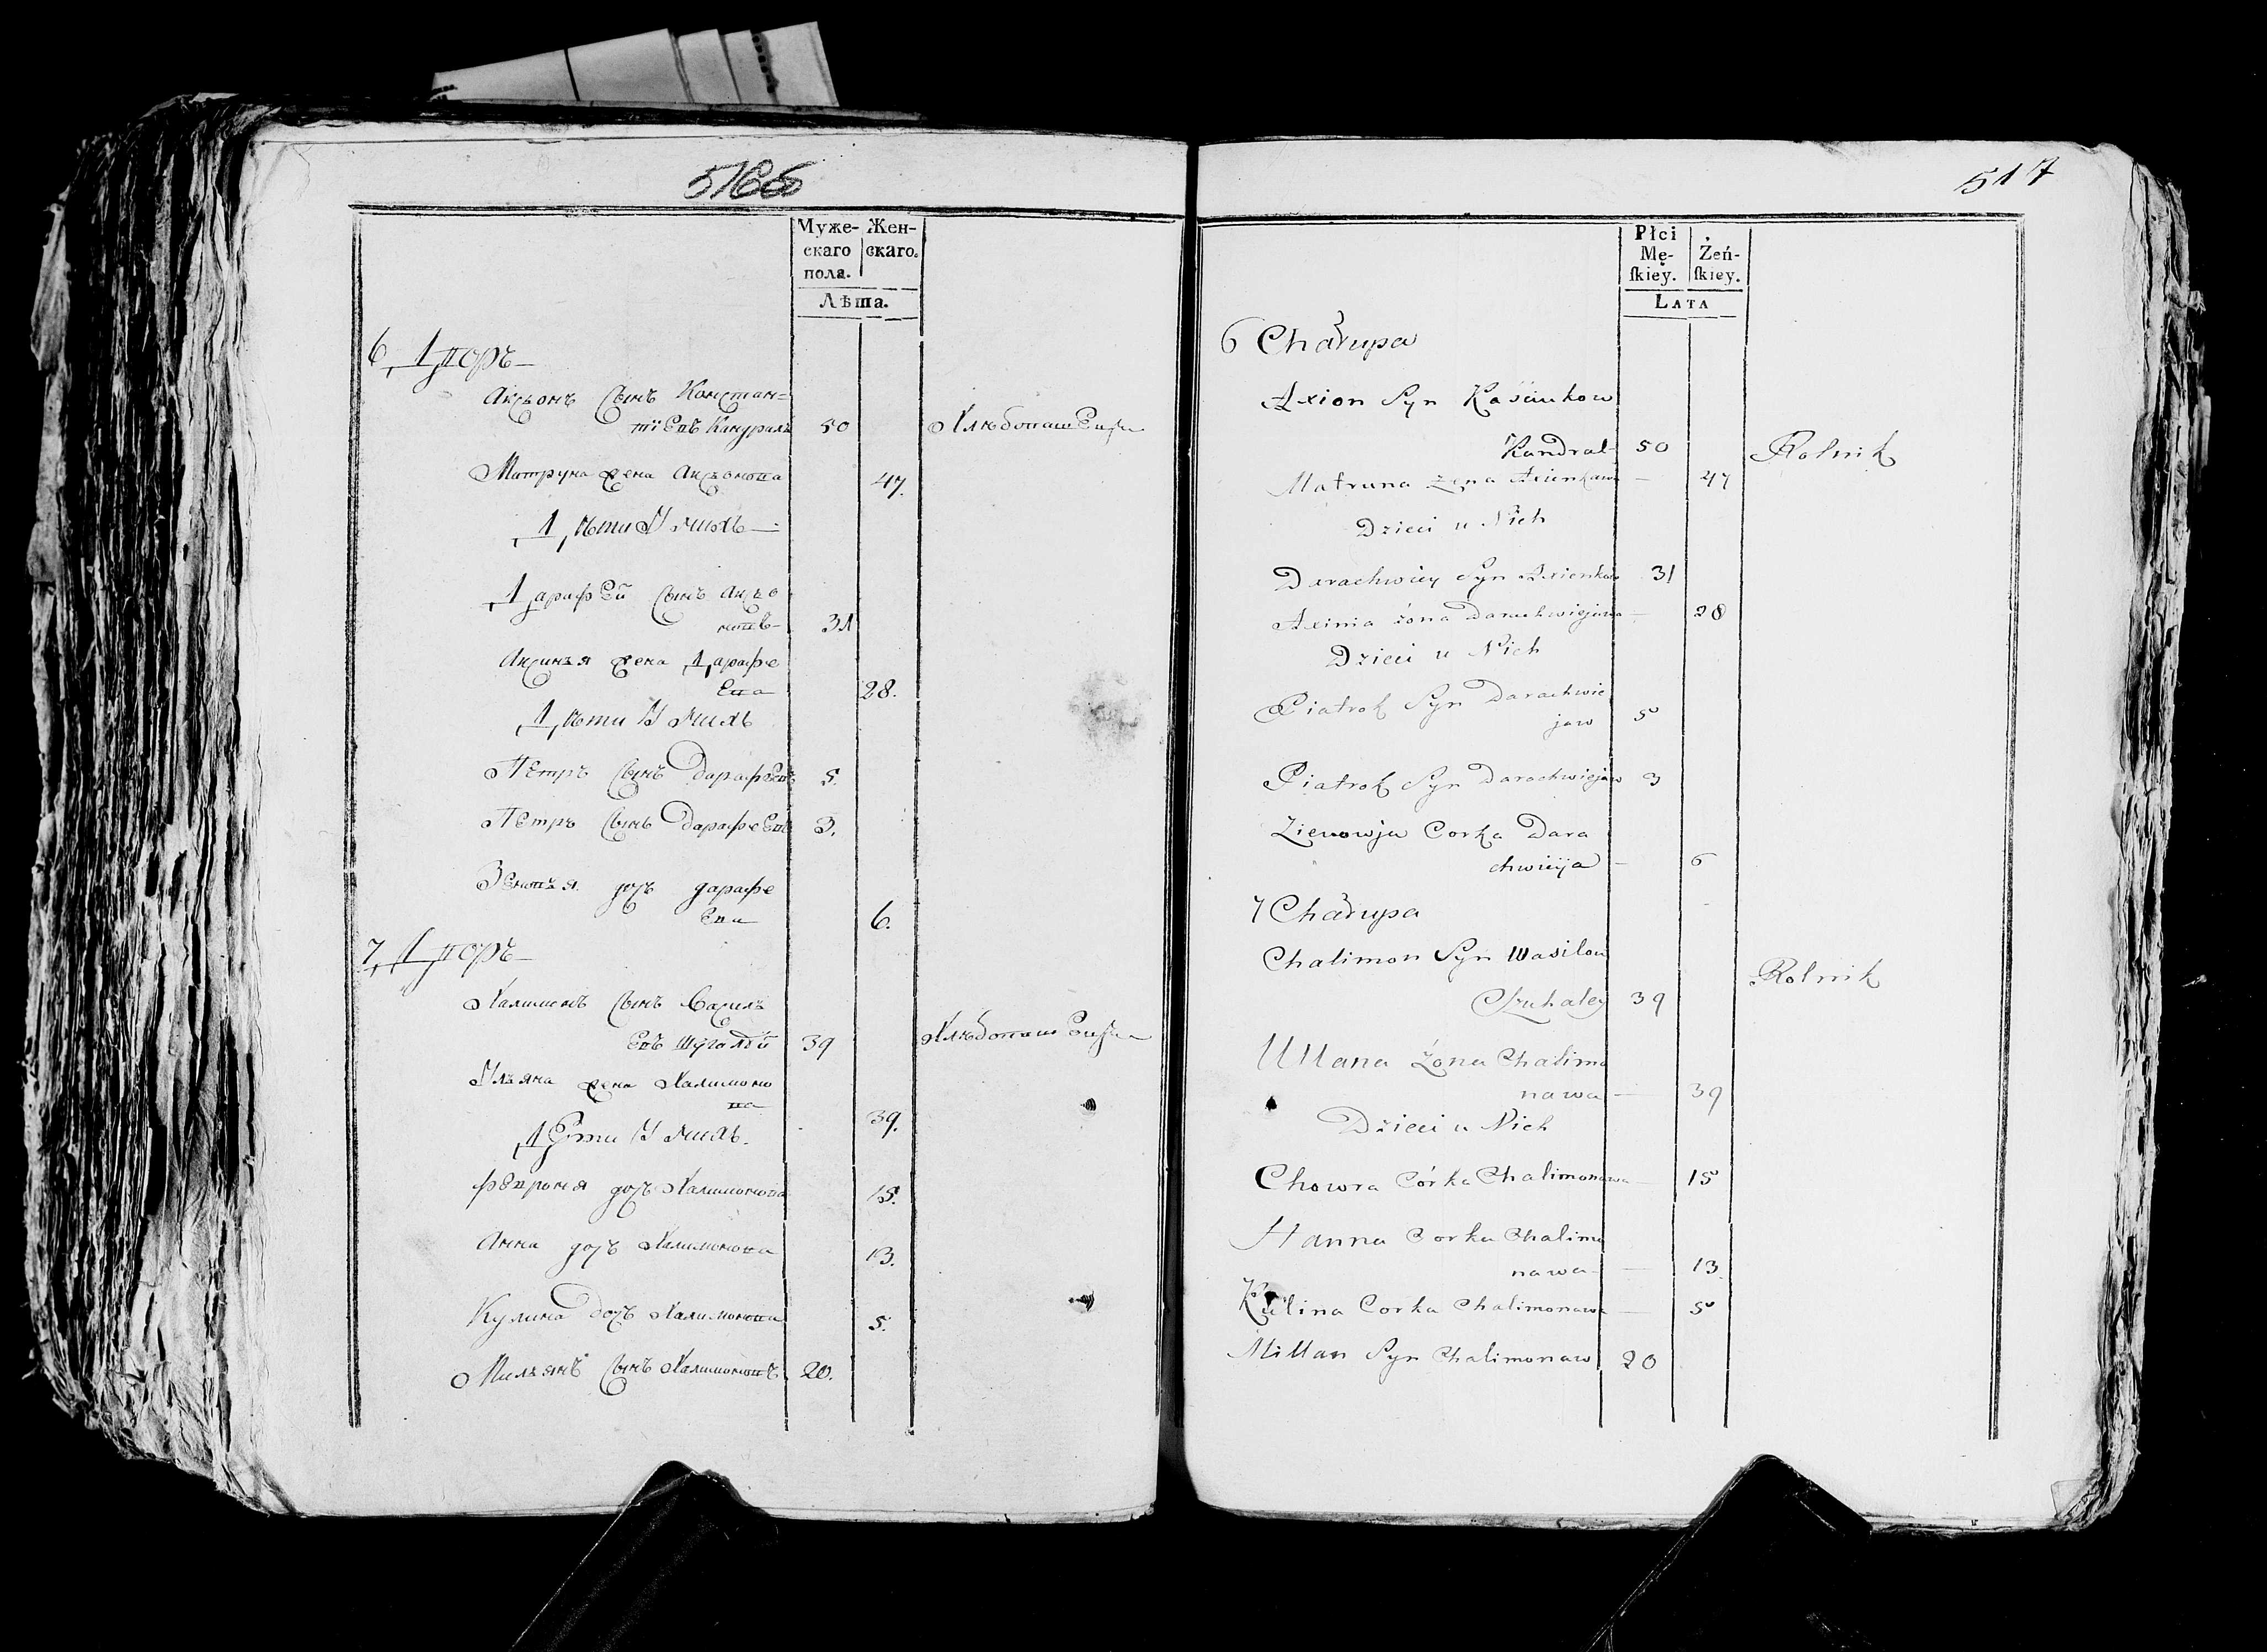 516
Муже-
скаго
пола.
Жен-
скаго.
Лѣта.
6 Дворъ
Аксіонъ Сынъ Констан=
тіевъ Кандралъ 50 Хлѣбопашецъ
Матруна жена Аксіонова 47.
Дѣти У нихъ
Дарафей Сынъ Аксіо
новъ 31
Аксинья жена Дарафе
ева 28.
Дѣти У нихъ
Петръ Сынъ Дарафеевъ 5.
Петръ Сынъ Дарафеевъ 3.
Зеновья дочь дарафе
ева 6.
7 Дворъ
Халимонъ Сынъ Васильъ
евъ Шугалѣй 39 Хлѣбопашецъ
Ульяна жена Халимоно
ва 39.
Дѣти У нихъ.
Февроня дочь Халимонова 15.
Анна дочь Халимонова 13.
Кулина дочь Халимонова 5.
Мильянъ Сынъ Халимоновъ 20.
517
Płci
Mę-
ſkiey.
Żeń-
ſkiey.
LATA
6 Chałupa
Axion Syn Kaściukow
Kandral 50 Rolnik
Matruna Żena Axienkawa 47
Dzieci u Nich
Darachwiey Syn Axienkow 31
Axinia żona Darachwiejawa 28
Dzieci u Nich
Piatrok Syn Darachwie
jaw 5
Piatrok Syn Darachwiejaw 3
Zienowja Corka Dara
chwieja 6
7 Chałupa
Chalimon Syn Wasilow
Szuhaley 39 Rolnik
Ullana Żona Chalimo
nawa 39
Dzieci u Nich
Chowra Córka Chalimonawa 15
Hanna Corka Chalimo
nawa 13
Kulina Corka Chalimonawa 5
Millan Syn Chalimonaw 20